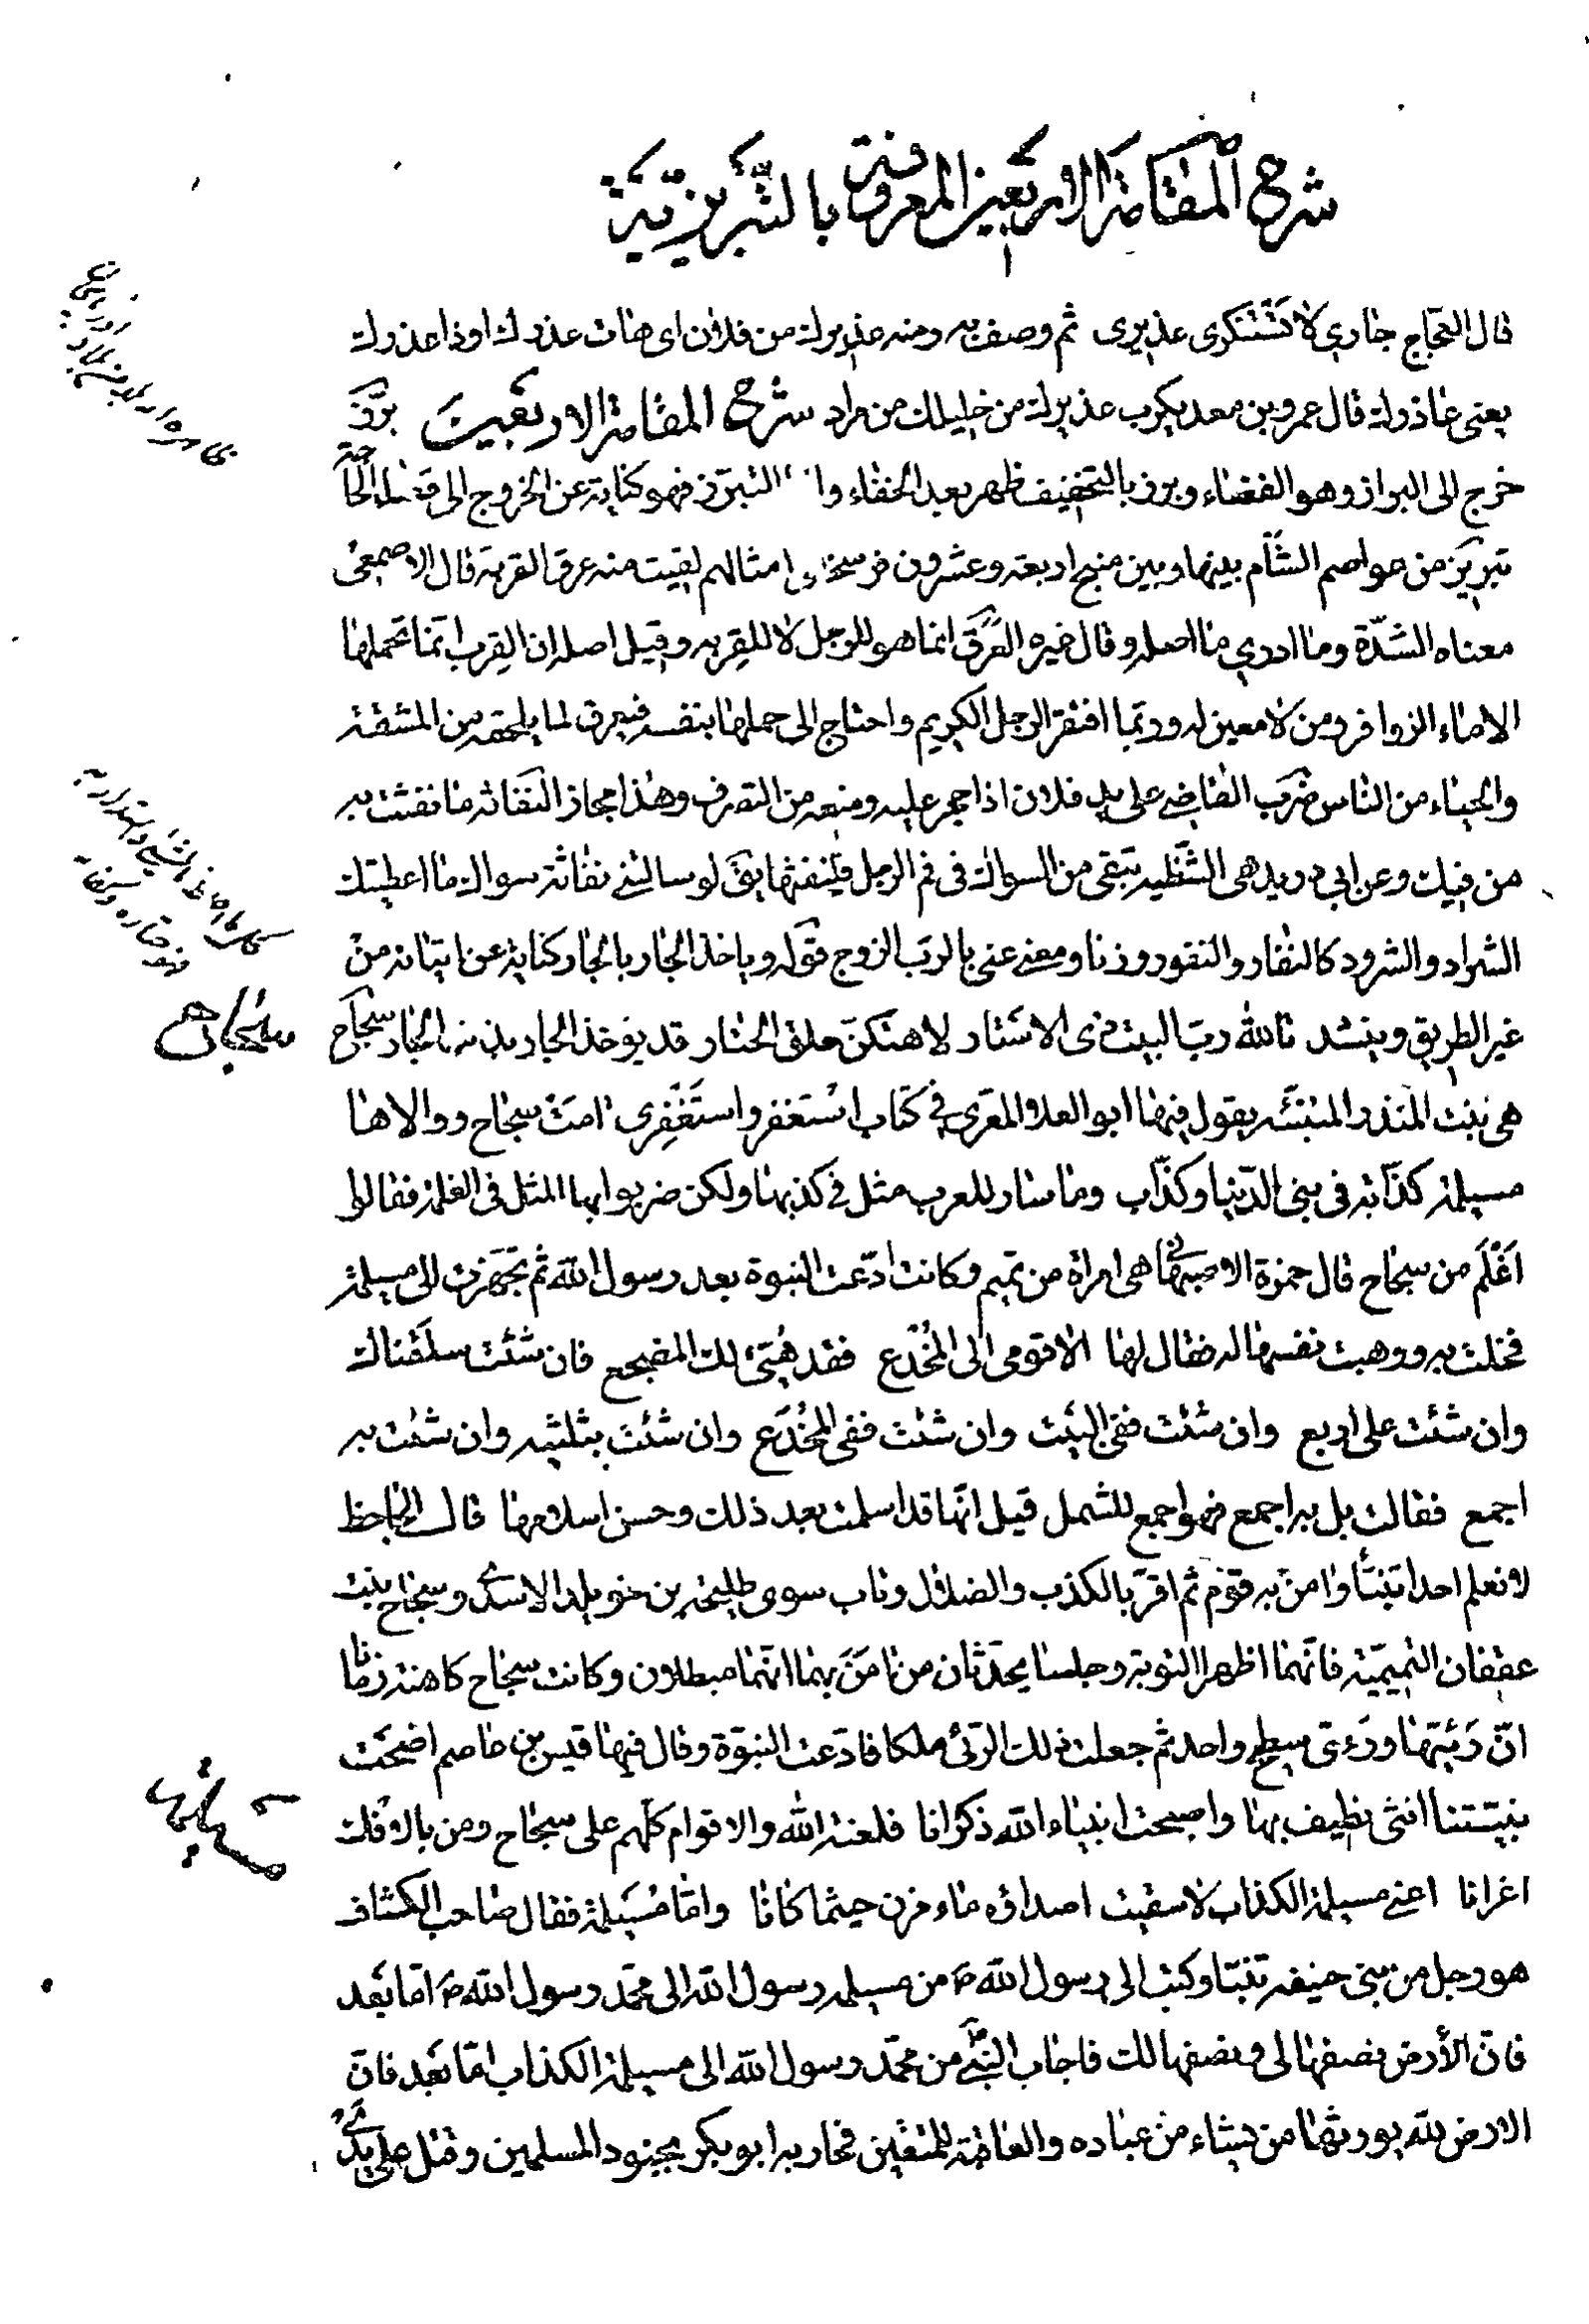 شرح المقامة الاربعين المعروفة بالتبريزية
قال العجاج جاري لا تستنكرى عذيرى ثم وصف به ومنه عذيرك من فلان اى هات عذرك او ذا عذرك
يعنى عاذرك قال عمرو بن معد يكرب عذيرك من خليلك من مراد شرح المقامة الاربعين برّز
خرج الى البراز وهو الفضاء وبرز بالتخفيف ظهر بعد الخفاء وا التبرّز فهو كناية عن الخروج الى قضاء الحاجة
تبريز من عواصم الشأم بينها وبين منبج اربعة وعشرون فرسخا امثالهم لقيت منه عرق القربة قال الاصمعى
معناه الشدّة وما ادري ما اصله وقال غيره العَرَق انما هو للرجل لا للقِربة وقيل اصله ان القِرب انّما تحملها
الاماء الزوافر ومن لا معين له وربّما افتقر الرجل الكريم واحتاج الى حملها بنفسه فيعرق لما يلحقه من المشقة
والحياء من الناس ضرب القاضى على يد فلان اذا حجر عليه ومنعه من التصرف وهذا مجاز النفّاثة ما نفثت به
من فيك وعن ابي دريد هى الشظيه تبقى من السواك فى فم الرجل فينفثها يق لو سالتنى نفاثة سواك ما اعطيتك
الشراد والشرود كالنفار والنفور وزنا ومعنى عنى بالرب الزوج قوله وياخذ الجار بالجار كناية عن اتيانه من
غير الطريق وينشد تالله ربّ البيت ذى الاستار لاهتكنّ حلق الحتار قد يؤخذ الجار بذنب الجار سجاح
سجاح
هى بنت المنذر المتنبئه يقول فيها ابو العلاء المعرّي في كتاب استغفر واستغفرى امت سجاح ووالاها
مسيلمة كذّابة فى بنى الدّنيا وكذّاب وما سار للعرب مثل في كذبها ولكن ضربوا بها المثل فى الغلمة فقالوا
اَغْلَم من سجاح قال حمزة الاصبهانى هى امراة من تميم وكانت ادّعت النبوة بعد رسول الله ثم تجهزت الى مسيلمة
فخلت به ووهبت نفسها له فقال لها الا قومى الى المُخْدَع فقد هُيّئ لك المضجع فان شئت سلقناك
وان شئت على اربع وان شئت ففى البيت وان شئت ففى المُخْدَع وان شئت بثلثيه وان شئت به
اجمع فقالت بل به اجمع فهو اجمع للشمل قيل انّها قد اسلمت بعد ذلك وحسن اسلامها قال الجاحظ
لا نعلم احدا تنبّأ وامن به قوم ثم اقرّ بالكذب والضلال وتاب سوى طليحة بن خويلد الاسدى وسجاح بنت
عقفان التميميّة فانّهما اظهرا التوبة وجلسا يحدّثان من امن بهما انهما مبطلان وكانت سجاح كاهنة زمانا
انّ رَئيّها ورَءىّ سطيح واحد ثم جعلت ذلك الرّئى ملكا فادّعت النبوّة وقال فيها قيس بن عاصم اضحت
نبيّتنا انثى نطيف بها واصبحت انبياء الله ذكرانا فلعنة الله والاقوام كلّهم على سجاح ومن بالافك
مسيلمة
اغرانا اعنى مسيلمة الكذاب لا سقيت اصداؤه ماء مزن حيثما كانا وامّا مُسَيلمة فقال صاحب الكشاف
هو رجل من بنى حنيفه تنبّا وكتب الى رسول الله ص من مسيلمه رسول الله الى محمّد رسول الله ص امّا بعد
فانّ الأرض نصفها لى ونصفها لك فاجاب النبّى من محمّد رسول الله الى مسيلمة الكذاب امّا بعد فانّ
الارض لله يورثها من يشاء من عباده والعاقبة للمتقين فحاربه ابو بكر بجنود المسلمين وقتل على يدى